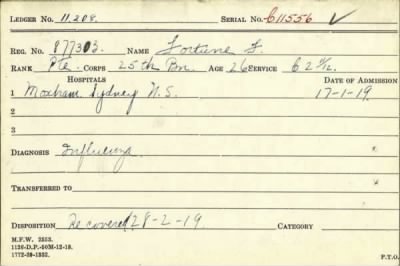 LEDGER NO. 11.208. SERIAL NO. C11556
REG. NO. 877303 NAME Fortune F.
RANK Pte. CORPS 25th Bn. AGE 26 SERVICE C 2 7/12.
HOSPITALS DATE OF ADMISSION
1 Moxham, Sydney N.S. 17-1-19.
2
2
3
DIAGNOSIS Influenza
TRANSFERRED TO
DISPOSITION Recovered 28-2-19. CATEGORY
M.F.W. 2553.
1126-D.P.-50M-12-18.
1772-39-1352. P.T.O.